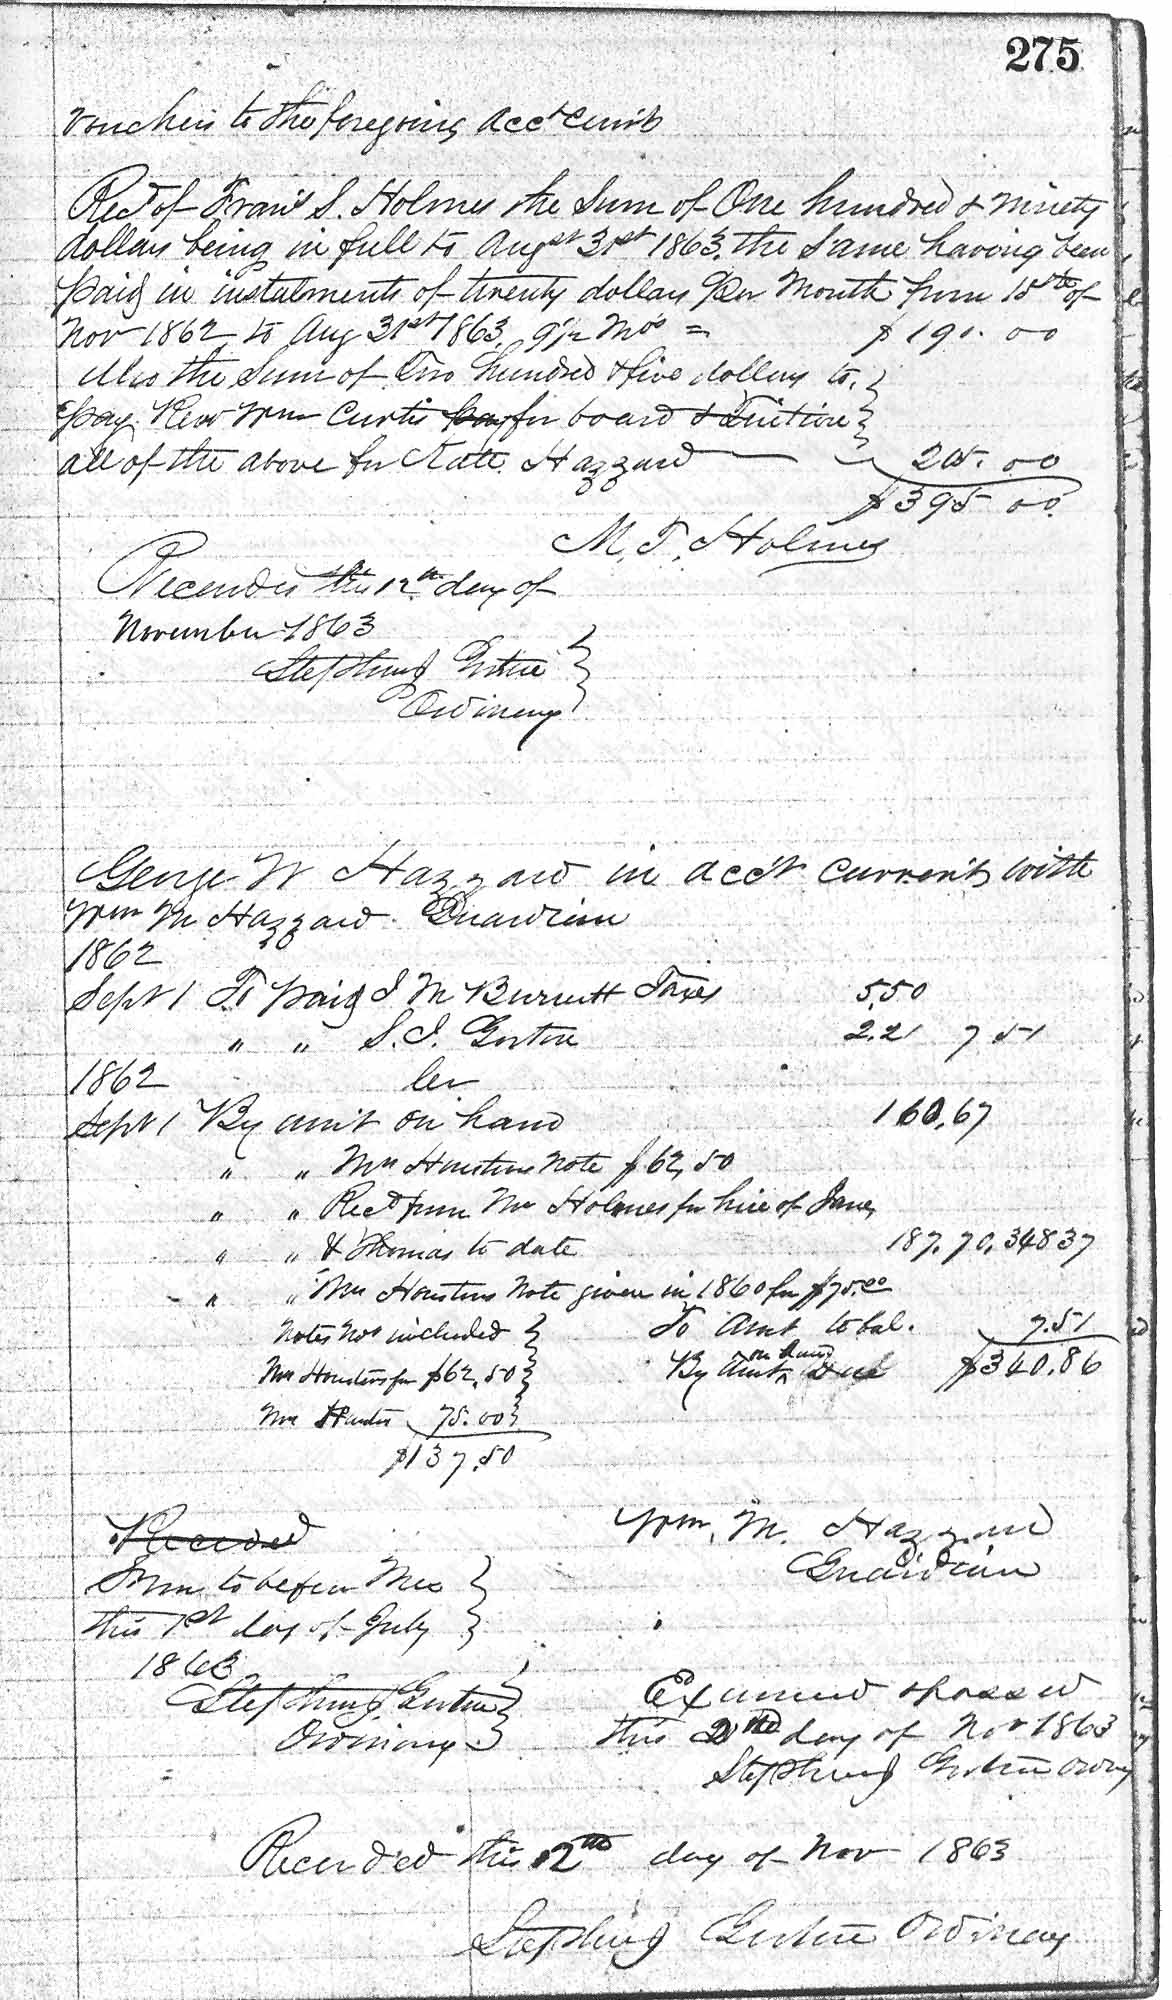 275
Vouchers to the foregoing Acct Currt
Recd of Frans S. Holmes the Sum of One hundred & ninety
dollars being in full to Augst 31st 1863. the Same having been
paid in instalments of twenty dollars per Month from 15th of
Nov 1862 to Aug 31st 1863. 9 1/2 Mos = $190.00
Also the Sum of Two hundred & five dollars to
pay Revd Wm Curtis pay for board & Tuition
all of the above for Kate Hazzard 205.00
$395.00
M. T. Holmes
Recorded this 12th day of
November 1863
Stephens Gortin
Ordinary
George W Hazzard in acc't current with
Wm M Hazzard Guardian
1862
Sept 1 To paid J M Burnett Taxes 5.50
" " S. J. Gortin 2.21 7 51
1862 Cr
Sept 1 By am't on hand 160.67
" " Mrs Houstons Note $62,50
" " Recd from Mr Holmes for hire of Jane,
" " & Thomas to date 187.70. 348 37
" " Mrs Houstons Note given in 1860 for $75.00
Notes not included To Amt to bal. 7.51
Mrs Houstons for $62,50 By Amt on hand $340.86
Mrs 75.00
$137.50
Recorded Wm. M. Hazzard
Guardian
Sworn to before Me
this 1st day of July
1863
Stephens Gortin
Ordinary
Examined & passed
this 2nd day of Nov 1863
Stephens Gortin Ordny
Recorded this 12th day of Nov 1863
Stephens Gortin Ordinary